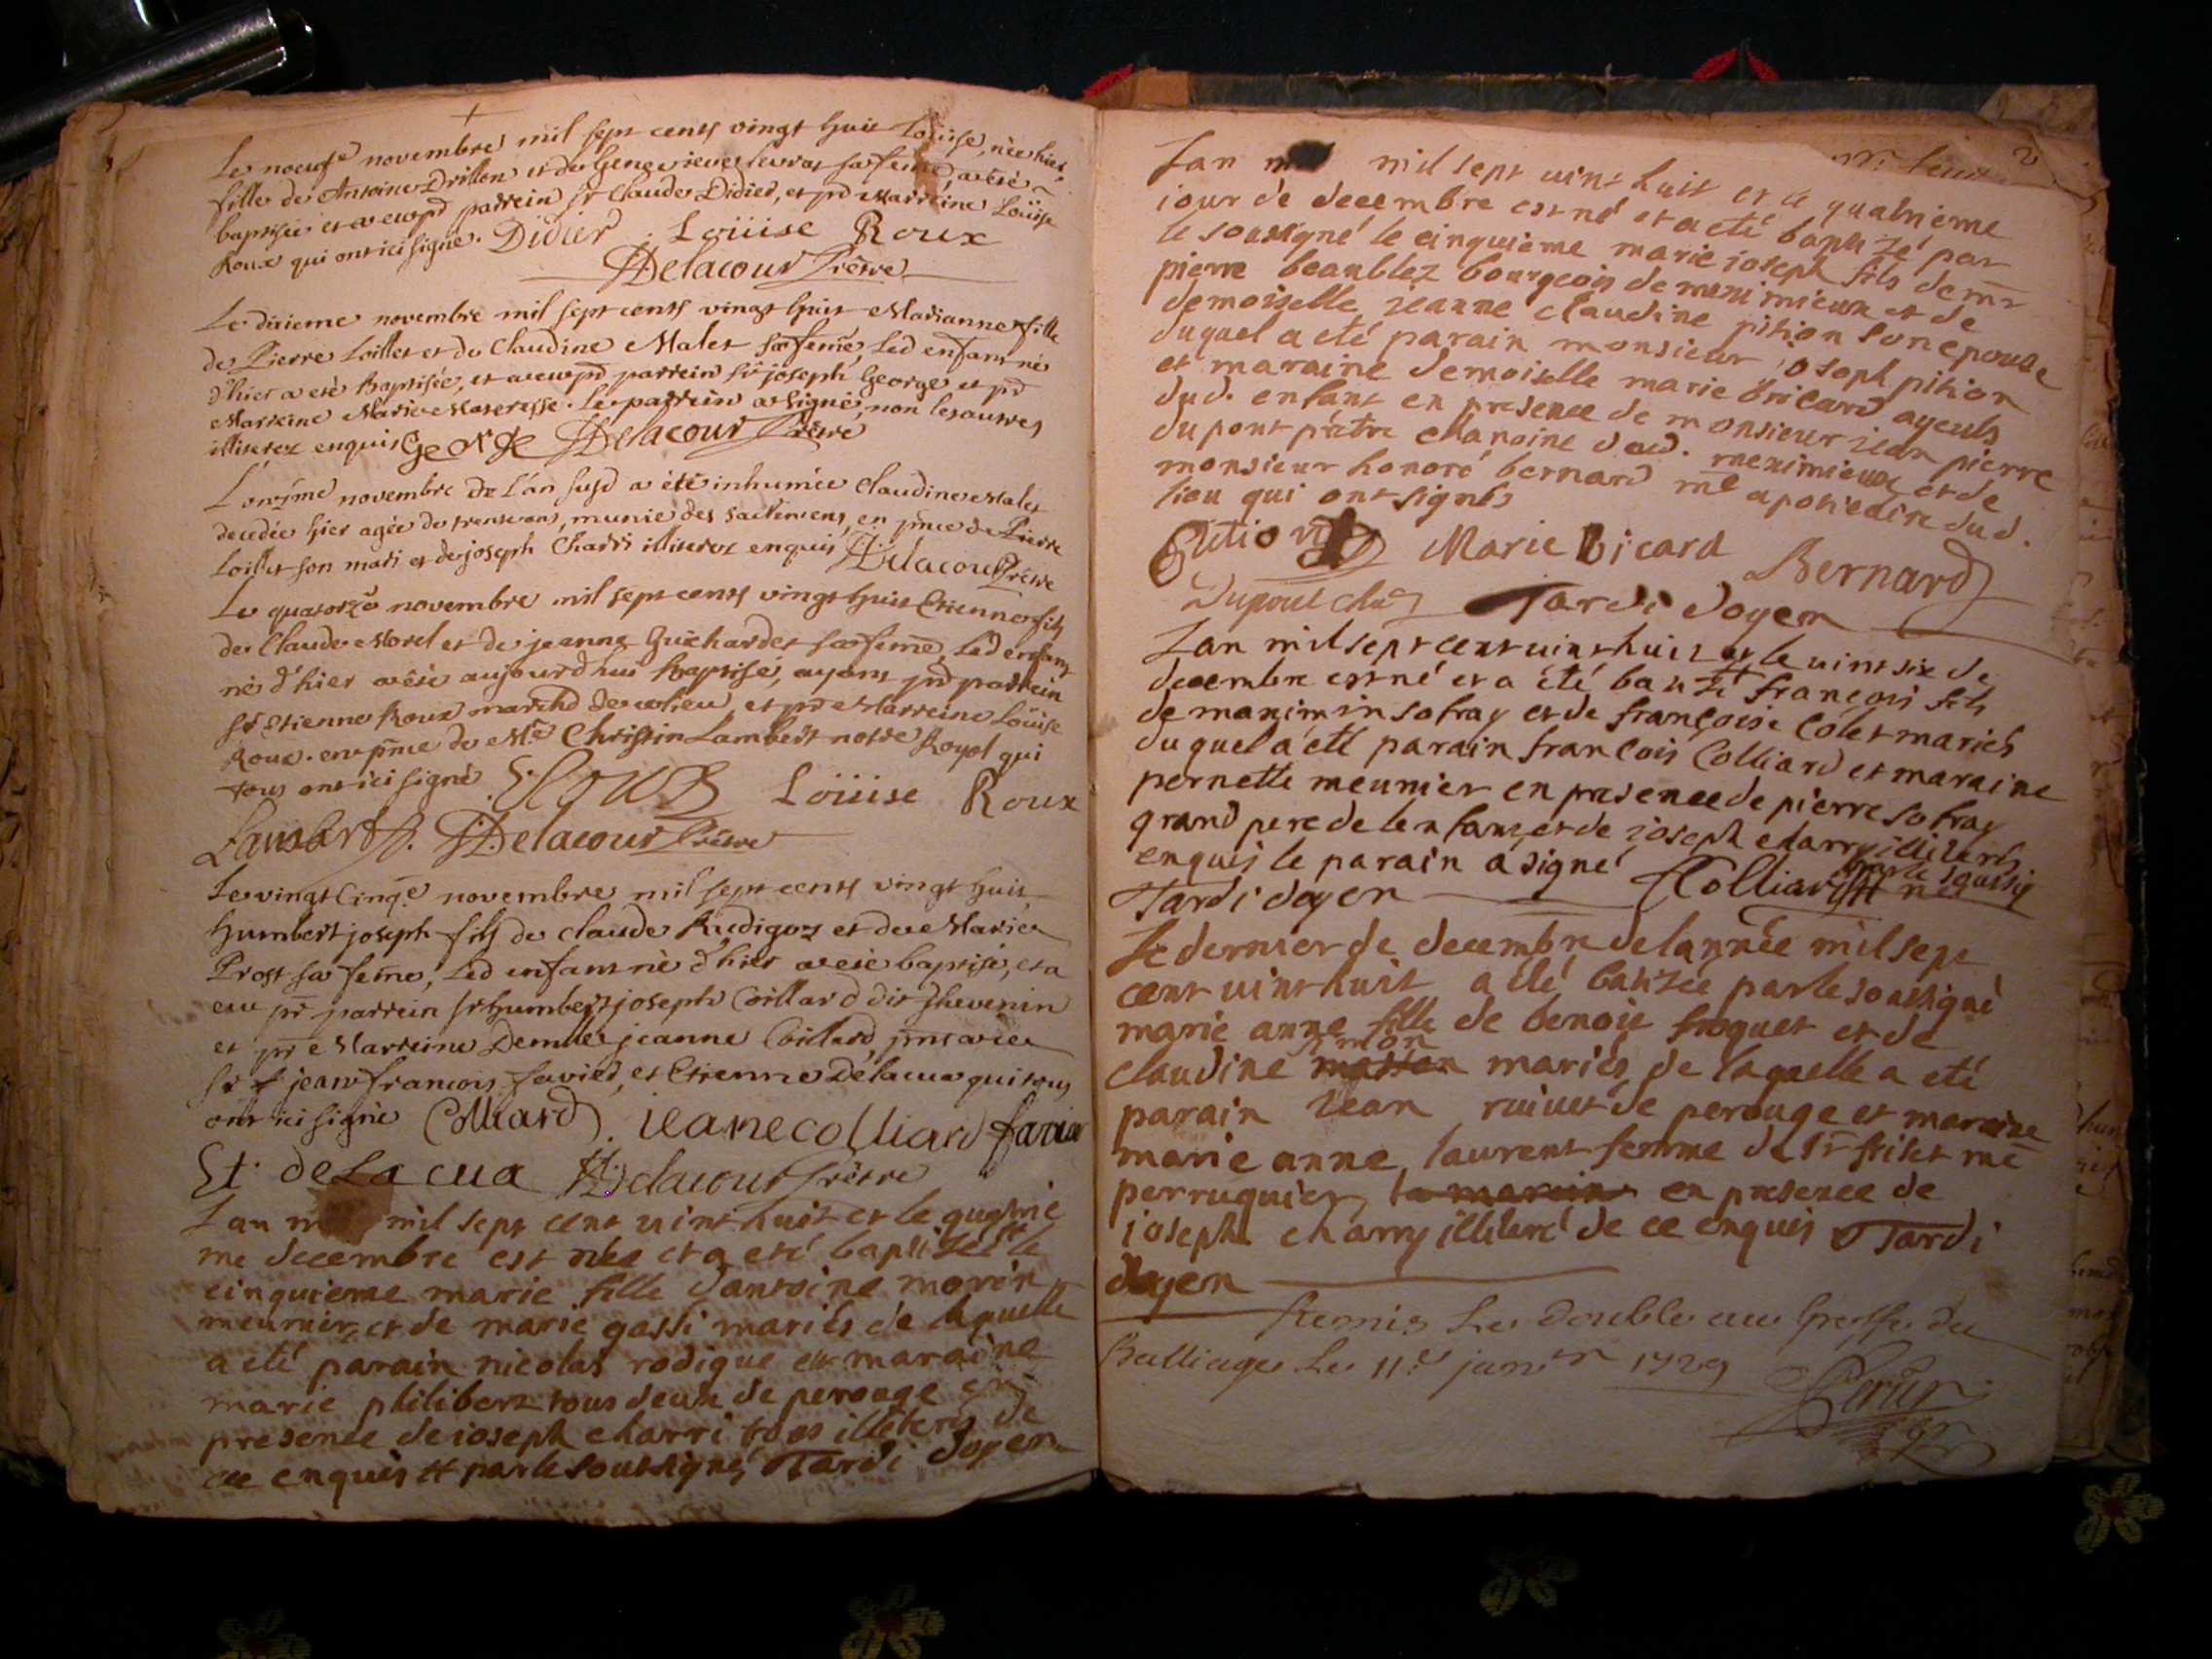 Le noeufe novembre mil sept cents vingt huit Loüise, née hier,
fille de Antoine Drillon et de Genevieve Levrat sa feme a été
baptisée et a eu pr parrein sr Claude Didier, et pr Marreine Loüise
Roux qui ont ici signé. Didier . Loüise Roux
Delacour Prêtre
Le dixieme novembre mil sept cents vingt huit Marianne fille
de Pierre Loillet et de Claudine Malet sa feme, led enfant né
d'hier a eté baptisée, et a eu pr parrein sr joseph George et pr
Marreine Marie Maseresse. Le parrein a signé, non les autres
illiterez enquis George Delacour Prêtre
L'onzme novembre de l'an susd a été inhumée Claudine Malet
decedée hier agée de trente ans, munie des sacremens, en pnce de Pierre
Loillet son mari et de joseph Charri illiterez enquis Delacour Prêtre
Le quatorze novembre mil sept cents vingt huit Etienne fils
de Claude Morel et de jeanne Guichardet sa feme, Led enfant
né d'hier a été aujourd'hui baptisé, ayant pr parrein
sr Etienne Roux marchd de ce lieu, et pr Marreine Loüise
Roux. en pnce de Me Christin Lambert notre Royal qui
tous ont ici signé E. Roux Loüise Roux
Lambert. Delacour Prêtre
Le vingt cinqe novembre mil sept cents vingt huit,
humbert joseph fils de claude Rudigoz et de Marie
Prost sa feme, Led enfant né d'hier a eté baptisé, et a
eu pr parrein sr humbert joseph Coillard dit Thevenin
et pr Marreine Demlle jeanne Coillard
sr jean francois favier, et Etienne Delacua qui tous
ont ici signé Colliard. ieane colliard favier
Et. deLa cua Delacour Prêtre
Lan mil sept cent vint huit et le quatrié
me decembre est née et a eté baptizée le
cinquieme marie fille dantoine morin
meunier et de marie gassi mariés de laquelle
a eté parain nicolas rodigue et maraine
marie philibert tous deux de perouge en
presence de ioseph charri tous illiterés de
ce enquis # par le soussigné Tardi doyen
Lan mil sept vint huit et le quatrieme
iour de decembre est né et a eté baptizé par
le soussigné le cinquieme marie ioseph fils de mr
pierre beaublez bourgeois de meximieux et de
demoiselle jeanne claudine pition son epouse
duquel a eté parain monsieur ioseph pition
et maraine demoiselle marie bricard ayeuls
dud. enfant en presence de monsieur jean pierre
dupont prêtre chanoine dud. meximieux et de
monsieur honoré bernard me apoticaire dud.
lieu qui ont signés
Pition Marie bicard Bernard
Dupont chae Tardi doyen
Lan mil sept cent vint huit et le vint six de
decembre est né et a été batizé françois fils
de maximin sofray et de françoise Colet mariés
duquel a été parain françois Colliard et maraine
pernette meunier en presence de pierre sofray
grand pere de lenfant, et de ioseph charry illiterés
enquis le parain a signé # par le soussig
Tardi doyen Colliard né
Le dernier de decembre de lannée mil sept
cent vint huit a été batizée par le soussigné
marie anne fille de benoit froquet et de
simon
claudine mariés de laquelle a eté
parain jean ruivet de perouge et maraine
marie anne laurent femme de sr frilet me
perruquier, la maraine en presence de
ioseph charry illiteré de ce enquis Tardi
doyen
Remis Le double au Greffe du
Balliage Le 11e janvr 1729